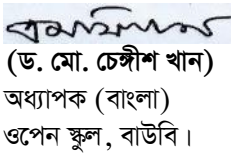 (ড. মো. চেঙ্গীশ খান)
অধ্যাপক (বাংলা)
ওপেন স্কুল, বাউবি।